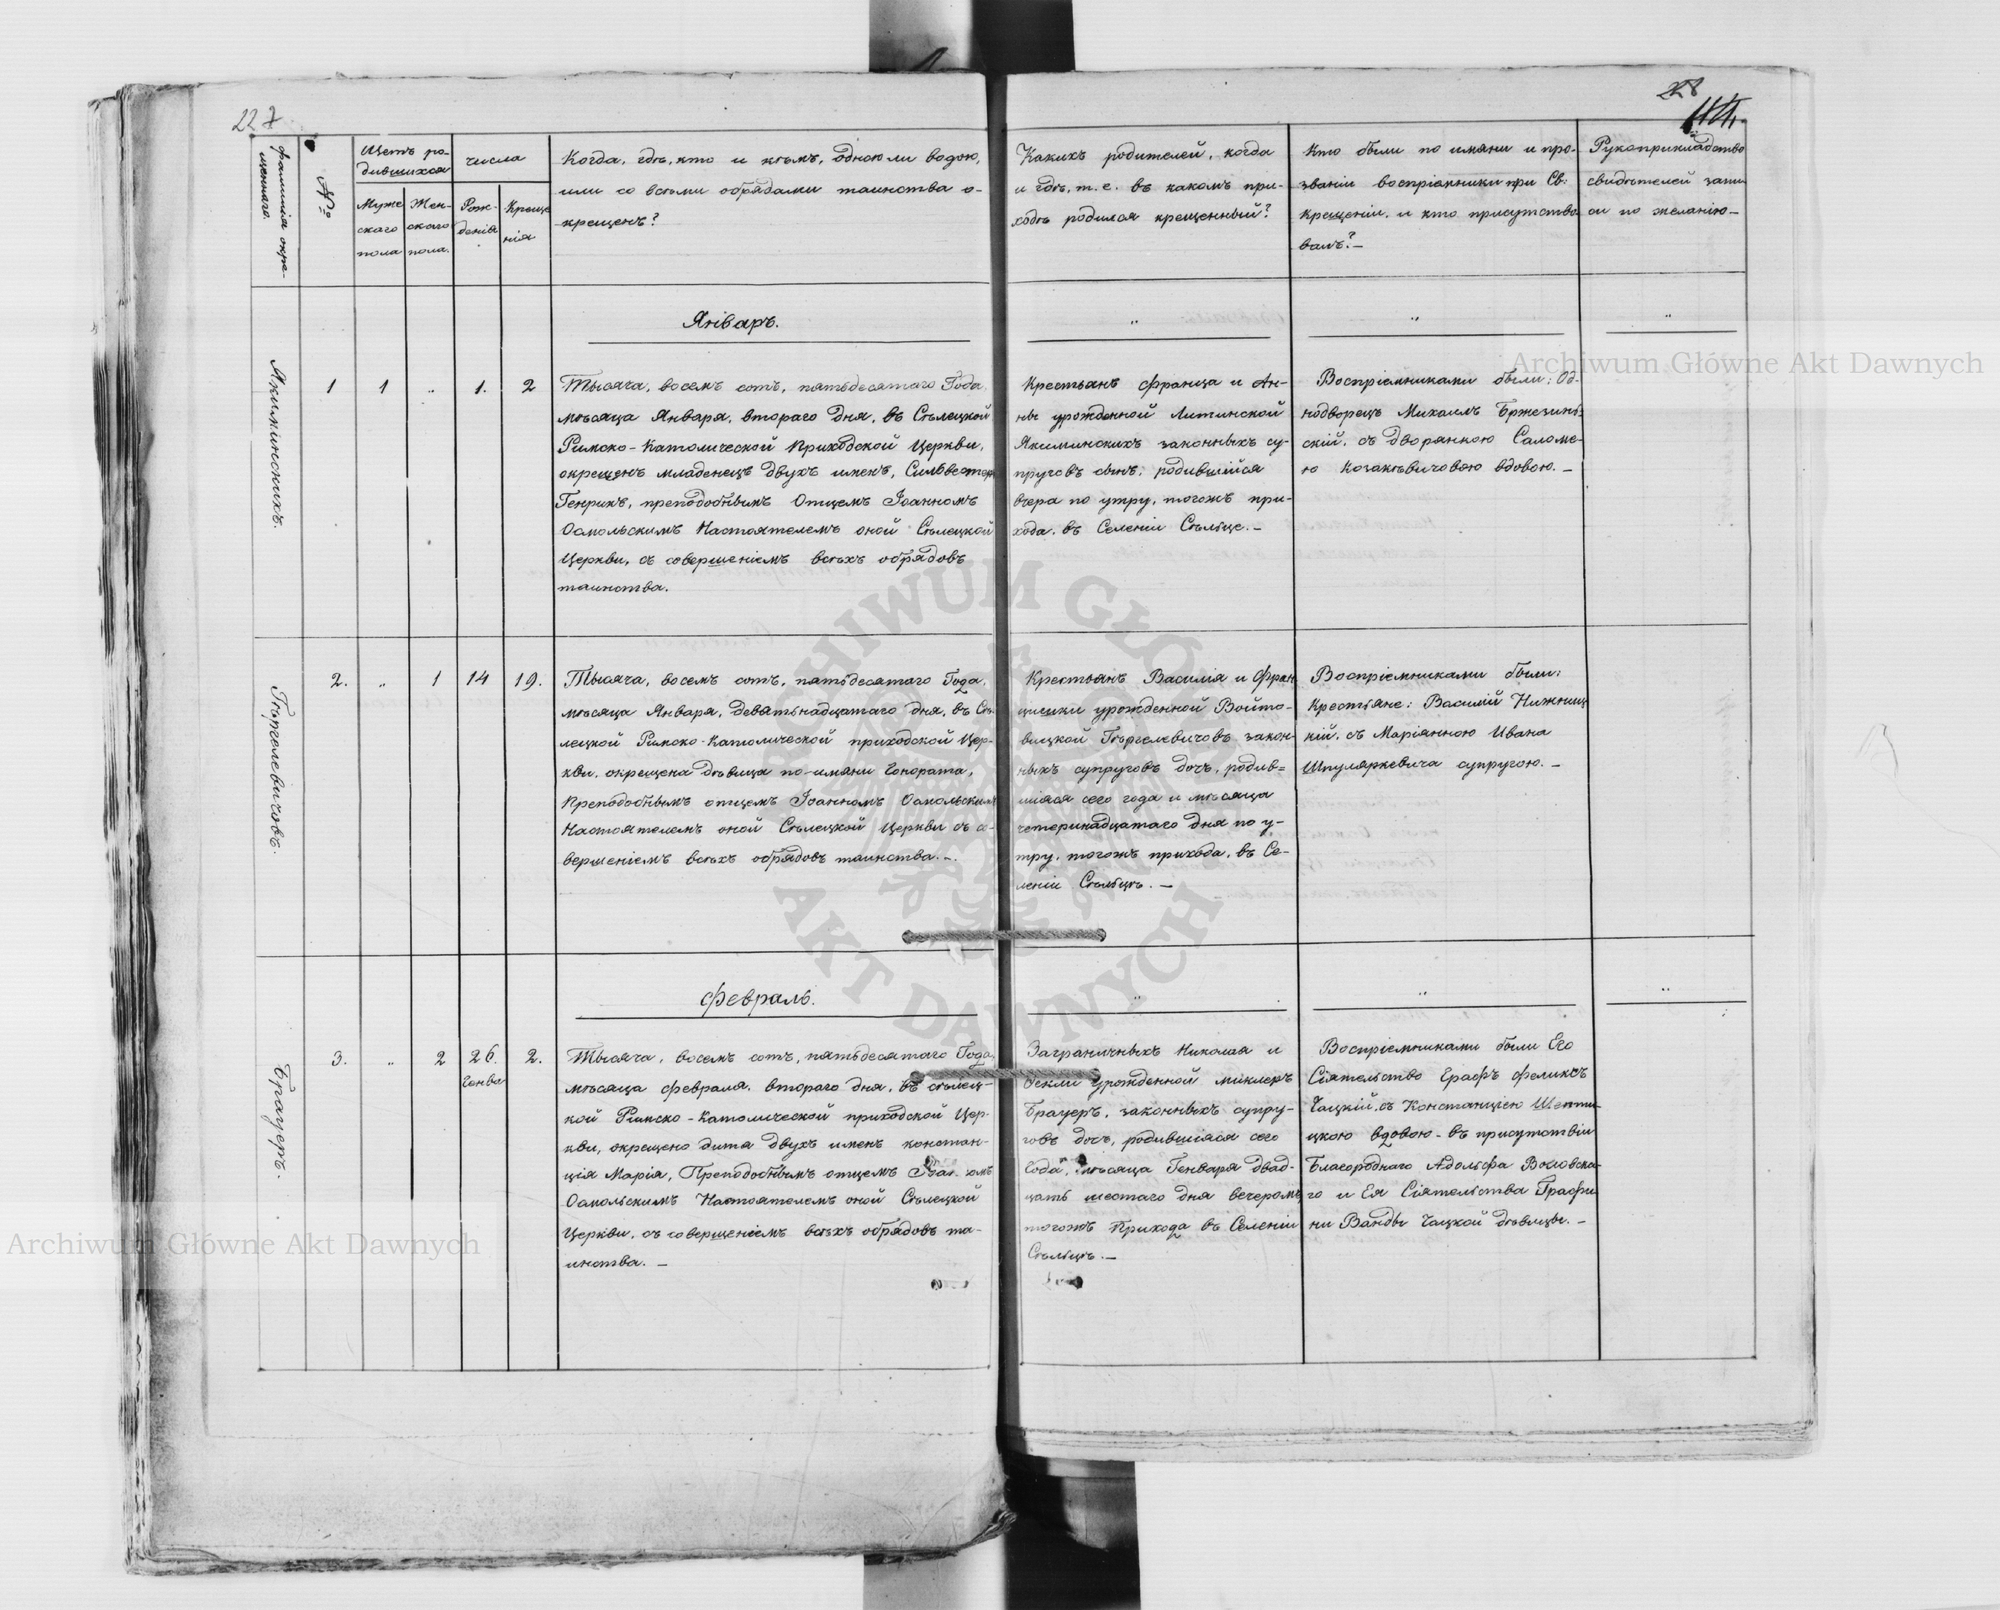 227
228
фамилія окре-
щеннаго.
№
Щетъ ро-
дившихся
Муже
скаго
пола
Жен-
скаго
пола.
числа
Рож-
денія
Креще
нія
Когда, гдѣ, кто и кѣмъ, одною ли водою,
или со всѣми обрядами таинства о-
крещенъ?
Какихъ родителей, когда
и гдѣ, т. е. въ какомъ при-
ходѣ родился крещенный?
Кто были по имяни и про-
званіи воспріемники при Св:
крещеніи, и кто присутство
валъ?—
Рукоприкладство
свидѣтелей
си по желанію—
Январь.
Якиминскихъ.
1
1
"
1.
2
Тысяча, восемъ сотъ, пятьдесятаго Года,
мѣсяца Января, втораго дня, въ Сѣлецкой
Римско-Католической Приходской Церкви,
окрещенъ младенецъ двухъ именъ, Сильвестеръ
Генрикъ, преподобнымъ Отцемъ Іоанномъ
Осмольскимъ Настоятелемъ оной Сѣлецкой
Церкви, съ совершеніемъ всѣхъ обрядовъ
таинства.
Крестьянъ Франца и Ан-
ны урожденной Литинской
Якиминскихъ законныхъ су-
пруговъ сынъ, родившійся
вчера по утру, тогожъ при-
хода, въ Селеніи Сѣльце.—
Воспріемниками были: Од-
нодворецъ Михаилъ Бржезинь-
скій, съ дворянкою Саломе-
ю Козакевичовою вдовою.—
Гѣргелевичовъ.
2.
"
1
14
19.
Тысяча, восемъ сотъ, пятьдесятаго Года,
мѣсяца Января, девятьнадцатаго дня, въ Сѣ-
лецкой Римско-Католической приходской Цер-
кви, окрещена дѣвица по-имяни Гонората,
Преподобнымъ отцемъ Іоанномъ Осмольскимъ
Настоятелемъ оной Сѣлецкой Церкви съ со-
вершеніемъ всѣхъ обрядовъ таинства.—
Крестьянъ Василія и Фран
цишки урожденной Войто-
вицкой Гѣргелевичовъ закон-
ныхъ супруговъ дочь, родив=
шіяся сего года и мѣсяца
четернадцатаго дня по у-
тру, тогожъ прихода, въ Се-
леніи Сѣльцѣ.—
Воспріемниками были:
Крестьяне: Василій Нижниц
кій, съ Маріянною Ивана
Шпуляркевича супругою.—
Февраль.
Брауеръ.
3.
"
2
26.
Генва
2.
Тысяча, восемъ сотъ, пятьдесятаго Года,
мѣсяца Февраля, втораго дня, въ Сѣлец-
кой Римско-Католической приходской Цер-
кви, окрещено дитя двухъ именъ Констан-
ція Марія, Преподобнымъ отцемъ Іоанномъ
Осмольскимъ Настоятелемъ оной Сѣлецкой
Церкви, съ совершеніемъ всѣхъ обрядовъ та-
инства.—
Заграничныхъ Николая и
урожденной Миклеръ
Брауеръ, законныхъ супру-
говъ дочь, родившіяся сего
Года, мѣсяца Генваря двад-
цать шестаго дня вечеромъ
тогожъ Прихода въ Селеніи
Сѣльцѣ.—
Воспріемниками были Его
Сіятельство Графъ Феликсъ
Чацкій, съ Констанціею Шепти-
цкою вдовою-въ присутствіи
Благороднаго Адольфа
го и Ея Сіятельства Графи
ни Ванды Чацкой дѣвицы.—
Archiwum Główne Akt Dawnych
ARCHIWUM GŁÓWNE
AKT DAWNYCH
Archiwum Główne Akt Dawnych